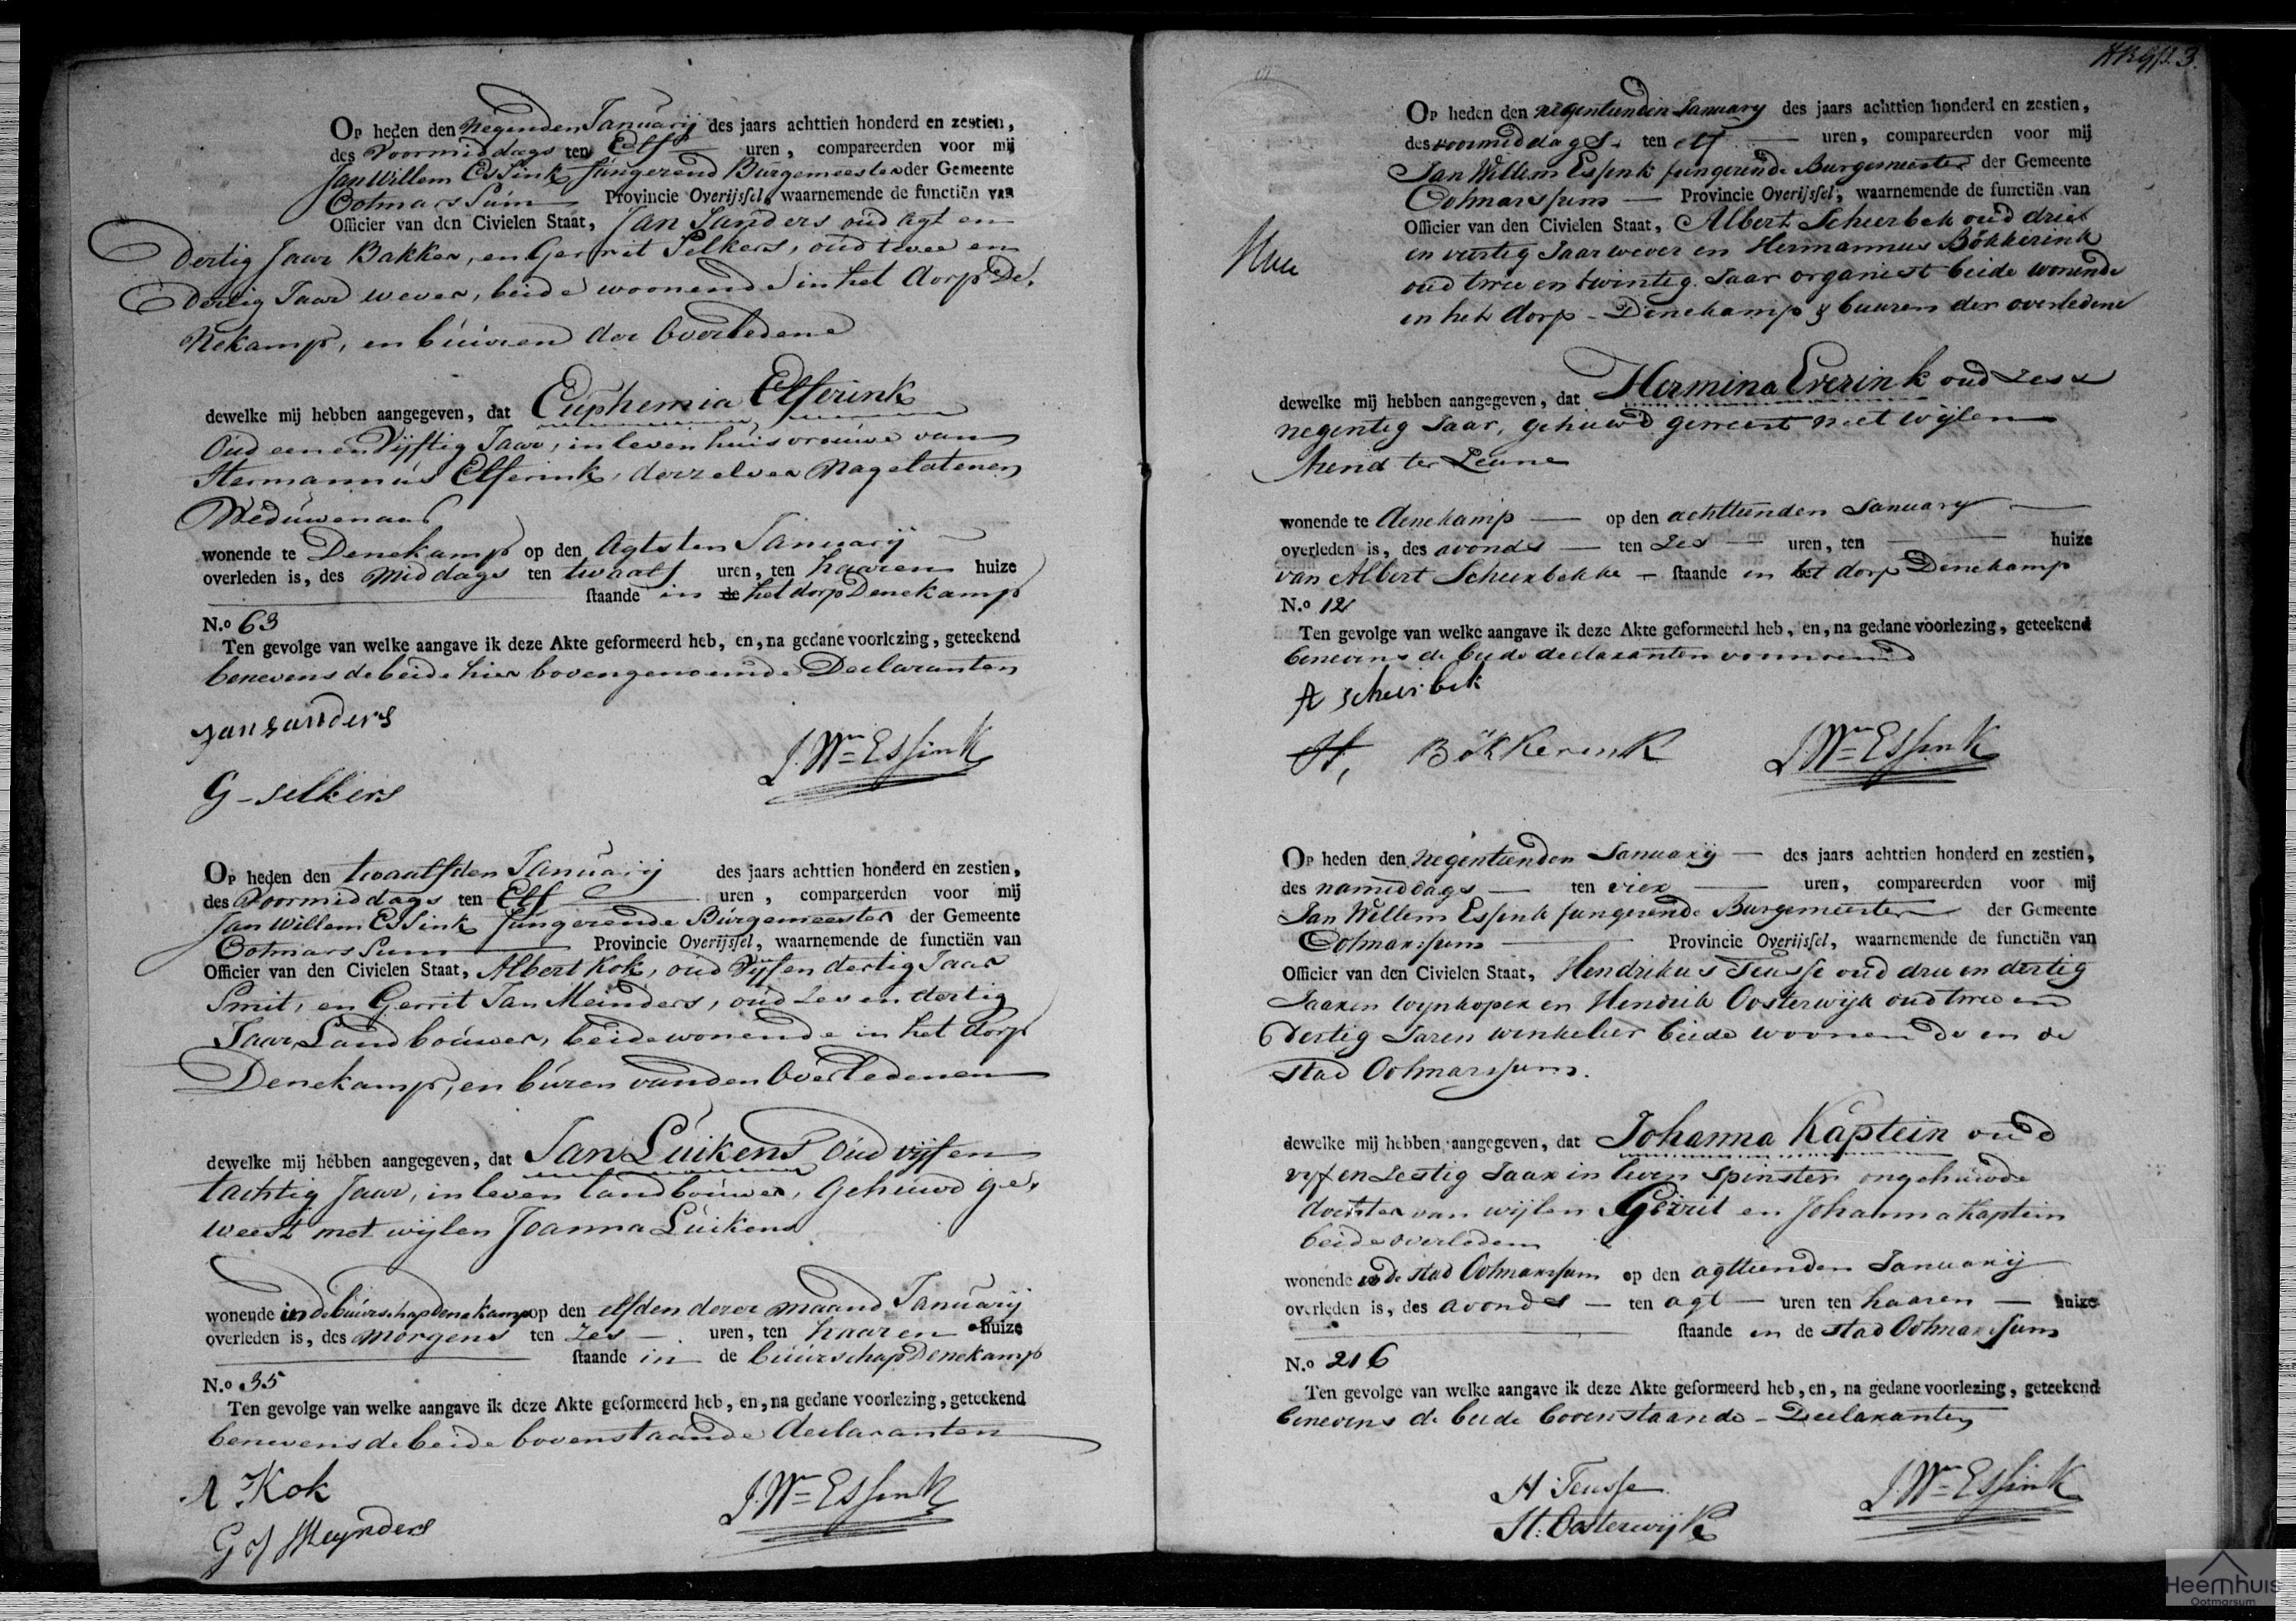 Op heden den Negenden Januarij des jaars achttien honderd en zestien,
des Voormiddags ten Elf uren, compareerden voor mij
Jan Willem Essink fungerend Burgemeester der Gemeente
Ootmarssum Provincie Overijssel, waarnemende de functiën van
Officier van den Civielen Staat, Jan Sanders oud agt en
Dertig Jaar Bakker, en Gerrit Selkers, oud twee en
Dertig Jaar wever, beide woonende in het dorp De-
Nekamp, en buuren der Overledene
dewelke mij hebben aangegeven, dat Euphemia Elferink
Oud een en Vijftig Jaar, in leven huisvrouwe van
Hermannus Elferink, derzelver Nagelatenen
Weduwenaar
wonende te Denekamp op den Agtsten Januarij
overleden is, des Middags ten twaalf uren, ten haaren huize
staande in de het dorp Denekamp
N.o 63
Ten gevolge van welke aangave ik deze Akte geformeerd heb, en, na gedane voorlezing, geteekend
benevens de beide hier bovengenoemde Declaranten
Jan sanders
J. Wm Essink
G - selkers
Op heden den twaalfden Januarij des jaars achttien honderd en zestien,
des Voormiddags ten Elf uren, compareerden voor mij
Jan Willem Essink fungerende Burgemeester der Gemeente
Ootmarssum Provincie Overijssel, waarnemende de functiën van
Officier van den Civielen Staat, Albert Kok, oud Vijf en dertig Jaar
Smit, en Gerrit Jan Meinders, oud Zes en dertig
Jaar, Landbouwer, beide wonende in het dorp
Denekamp, en buren van den Overledenen
dewelke mij hebben aangegeven, dat Jan Luikens Oud vijf en
tachtig Jaar, in leven landbouwer, Gehuwd ge-
weest met wijlen Joanna Luikens
wonende in de buurschap Denekamp op den elfden dezer maand Januarij
overleden is, des Morgens ten Zes uren, ten haaren huize
staande in de buurschap Denekamp
N.o 35
Ten gevolge van welke aangave ik deze Akte geformeerd heb, en, na gedane voorlezing, geteekend
benevens de beide bovenstaande declaranten
A Kok
J. Wm Essink
G J Meynders
3.
Op heden den negentienden January des jaars achttien honderd en zestien,
des voormiddags ten elf uren, compareerden voor mij
Jan Willem Essink fungerende Burgemeester der Gemeente
Ootmarssum Provincie Overijssel, waarnemende de functiën van
Officier van den Civielen Staat, Albert Scheerbek oud drie
en veertig Jaar wever en Hermannus Bökkerink
oud twee en twintig Jaar organist beide wonende
in het dorp Denekamp & buuren der overledene
dewelke mij hebben aangegeven, dat Hermina Everink oud zes
negentig Jaar, gehuwd geweest met wijlen
Arend ter Leune
wonende te denekamp op den achttienden January
overleden is, des avonds ten Zes uren, ten huize
van Albert Scheerbekke staande in het dorp Denekamp
N.o 121
Ten gevolge van welke aangave ik deze Akte geformeerd heb, en, na gedane voorlezing, geteekend
benevens de beide declaranten voornoemd
A scheirbek
H, Bökkerink J. Wm Essink
Op heden den negentienden January des jaars achttien honderd en zestien,
des namiddags ten vier uren, compareerden voor mij
Jan Willem Essink fungerende Burgemeester der Gemeente
Ootmarssum Provincie Overijssel, waarnemende de functiën van
Officier van den Civielen Staat, Hendrikus Teusse oud drie en dertig
Jaaren wynkoper en Hendrik Oosterwijk oud twee en
dertig Jaren winkelier beide woonende in de
stad Ootmarssum.
dewelke mij hebben aangegeven, dat Johanna Kaptein oud
vyf en Zestig Jaar in leven spinster ongehuwde
dochter van wijlen Gerrit en Johanna Kaptein
beide overleden
wonende in de stad Ootmarssum op den agttienden Januarij
overleden is, des avonds ten agt uren ten haaren huize
staande in de stad Ootmarssum
N.o 216
Ten gevolge van welke aangave ik deze Akte geformeerd heb, en, na gedane voorlezing, geteekend
benevens de beide bovenstaande Declaranten
H: Teusse
J. Wm Essink
H: Oosterwijk
Heemhuis
Ootmarsum